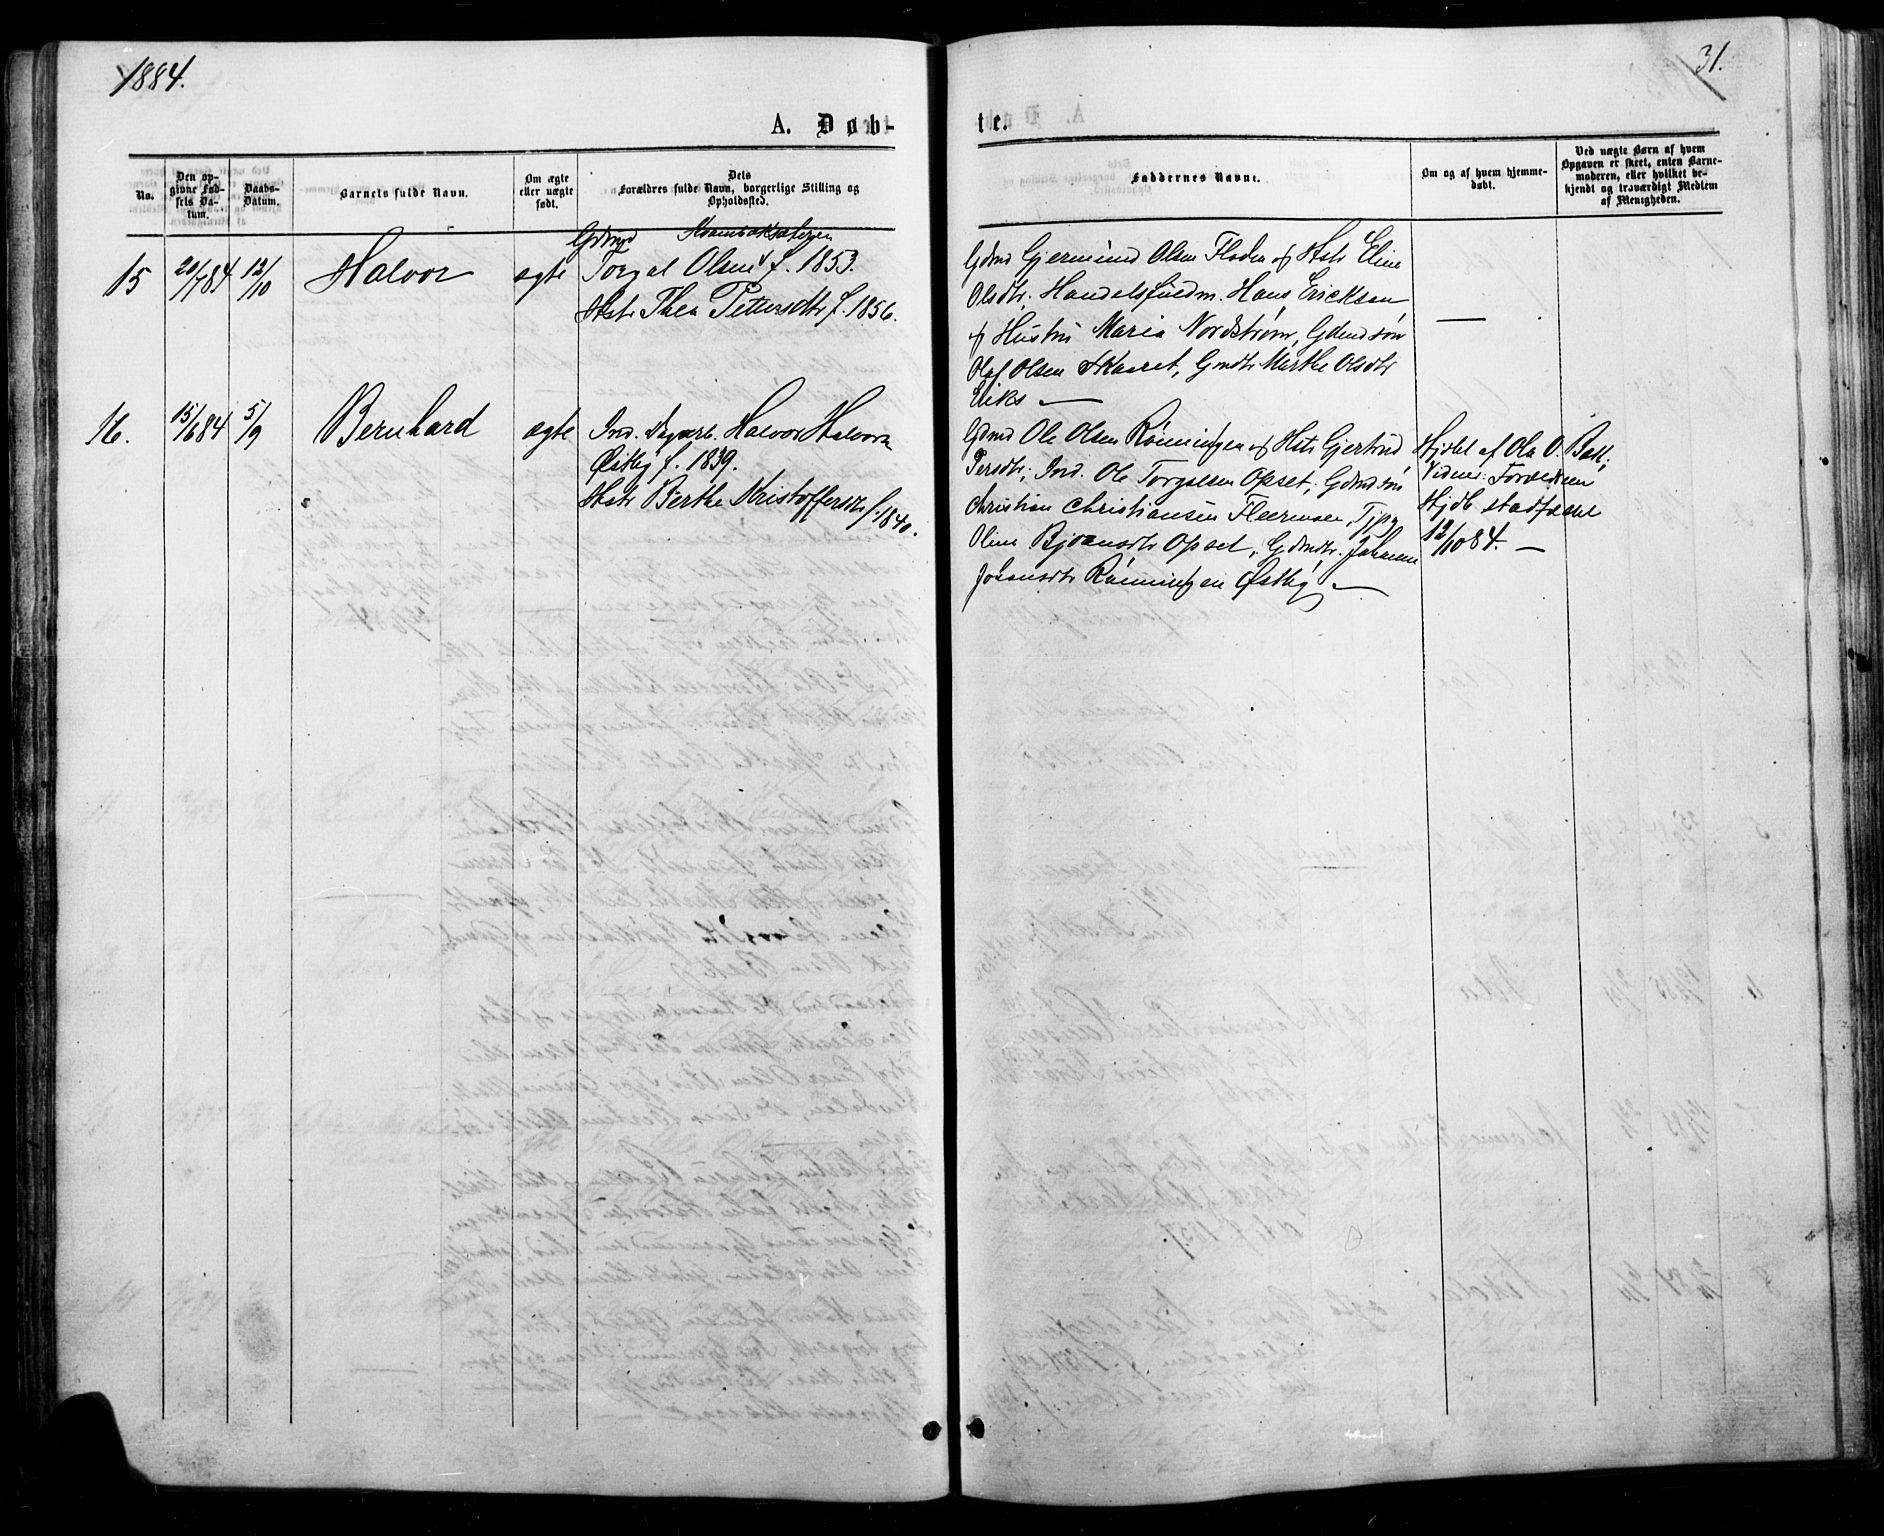 1884.
31.
A. Døb-
te.
No.
Den op-
givne Fød-
sels Da-
tum.
Daabs-
Datum.
Barnets fulde Navn.
Om ægte
eller uægte
født.
Dets
Forældres fulde Navn, borgerlige Stilling og
Opholdssted.
Faddernes Navne.
Om og af hvem hjemme-
døbt.
Ved uægte Børn af hvem
Opgaven er skeet, enten Barne-
moderen, eller hvilket be-
kjendt og troværdigt Medlem
af Menigheden.
15
20/7 84
12/10
Halvor
ægte
Gdmd
Torgal Olsen f. 1853.
Hstr Thea Pettersdtr f. 1856.
Gdmd Gjermund Olsen Floden og Hstr Eline
Olsdtr, Handelsfuldm. Hans Ericksen
og Hustru Maria Nordstrøm, Gdmdsøn
Olaf Olsen Skaaret, Gmdtr Marthe Olsdtr
—
16.
15/6 84
5/9
Bernhard
ægte
Ind. Dagarb. Halvor Halvorsn
Østby f. 1839.
Hstr Berthe Kristoffersdtr f. 1840.
Gdmd Ole Olsen Rønningen og Hstr Gjertrud
Persdtr; Ind. Ole Torgalsen Opset; Gdmdsøn
Christian Christiansen Fleermoen, Tjpg
Oline Bjørnsdtr Opset, Gdmdtr. Johanne
Johansdtr Rønningen Østby —
Hjdbt af Ole O. Bak;
Vidner: Forældrene
Hjdb stadfæstet
12/10 84. —